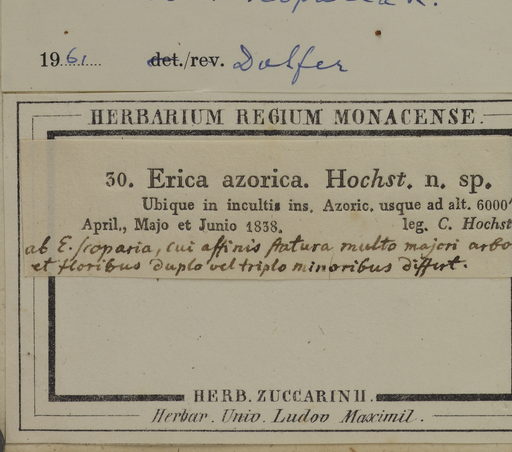 1961 det./rev. Dolfer
HERBARIUM REGIUM MONACENSE.
30. Erica azorica. Hochst. n. sp.
Ubique in incultis ins. Azoric. usque ad alt. 6000'
April., Majo et Junio 1838. leg. C. Hochst
ab E. scoparia, cui affinis statura multo majori arbo
et floribus duplo vel triplo minoribus differt.
HERB. ZUCCARINII.
Herbar. Univ. Ludov Maximil.